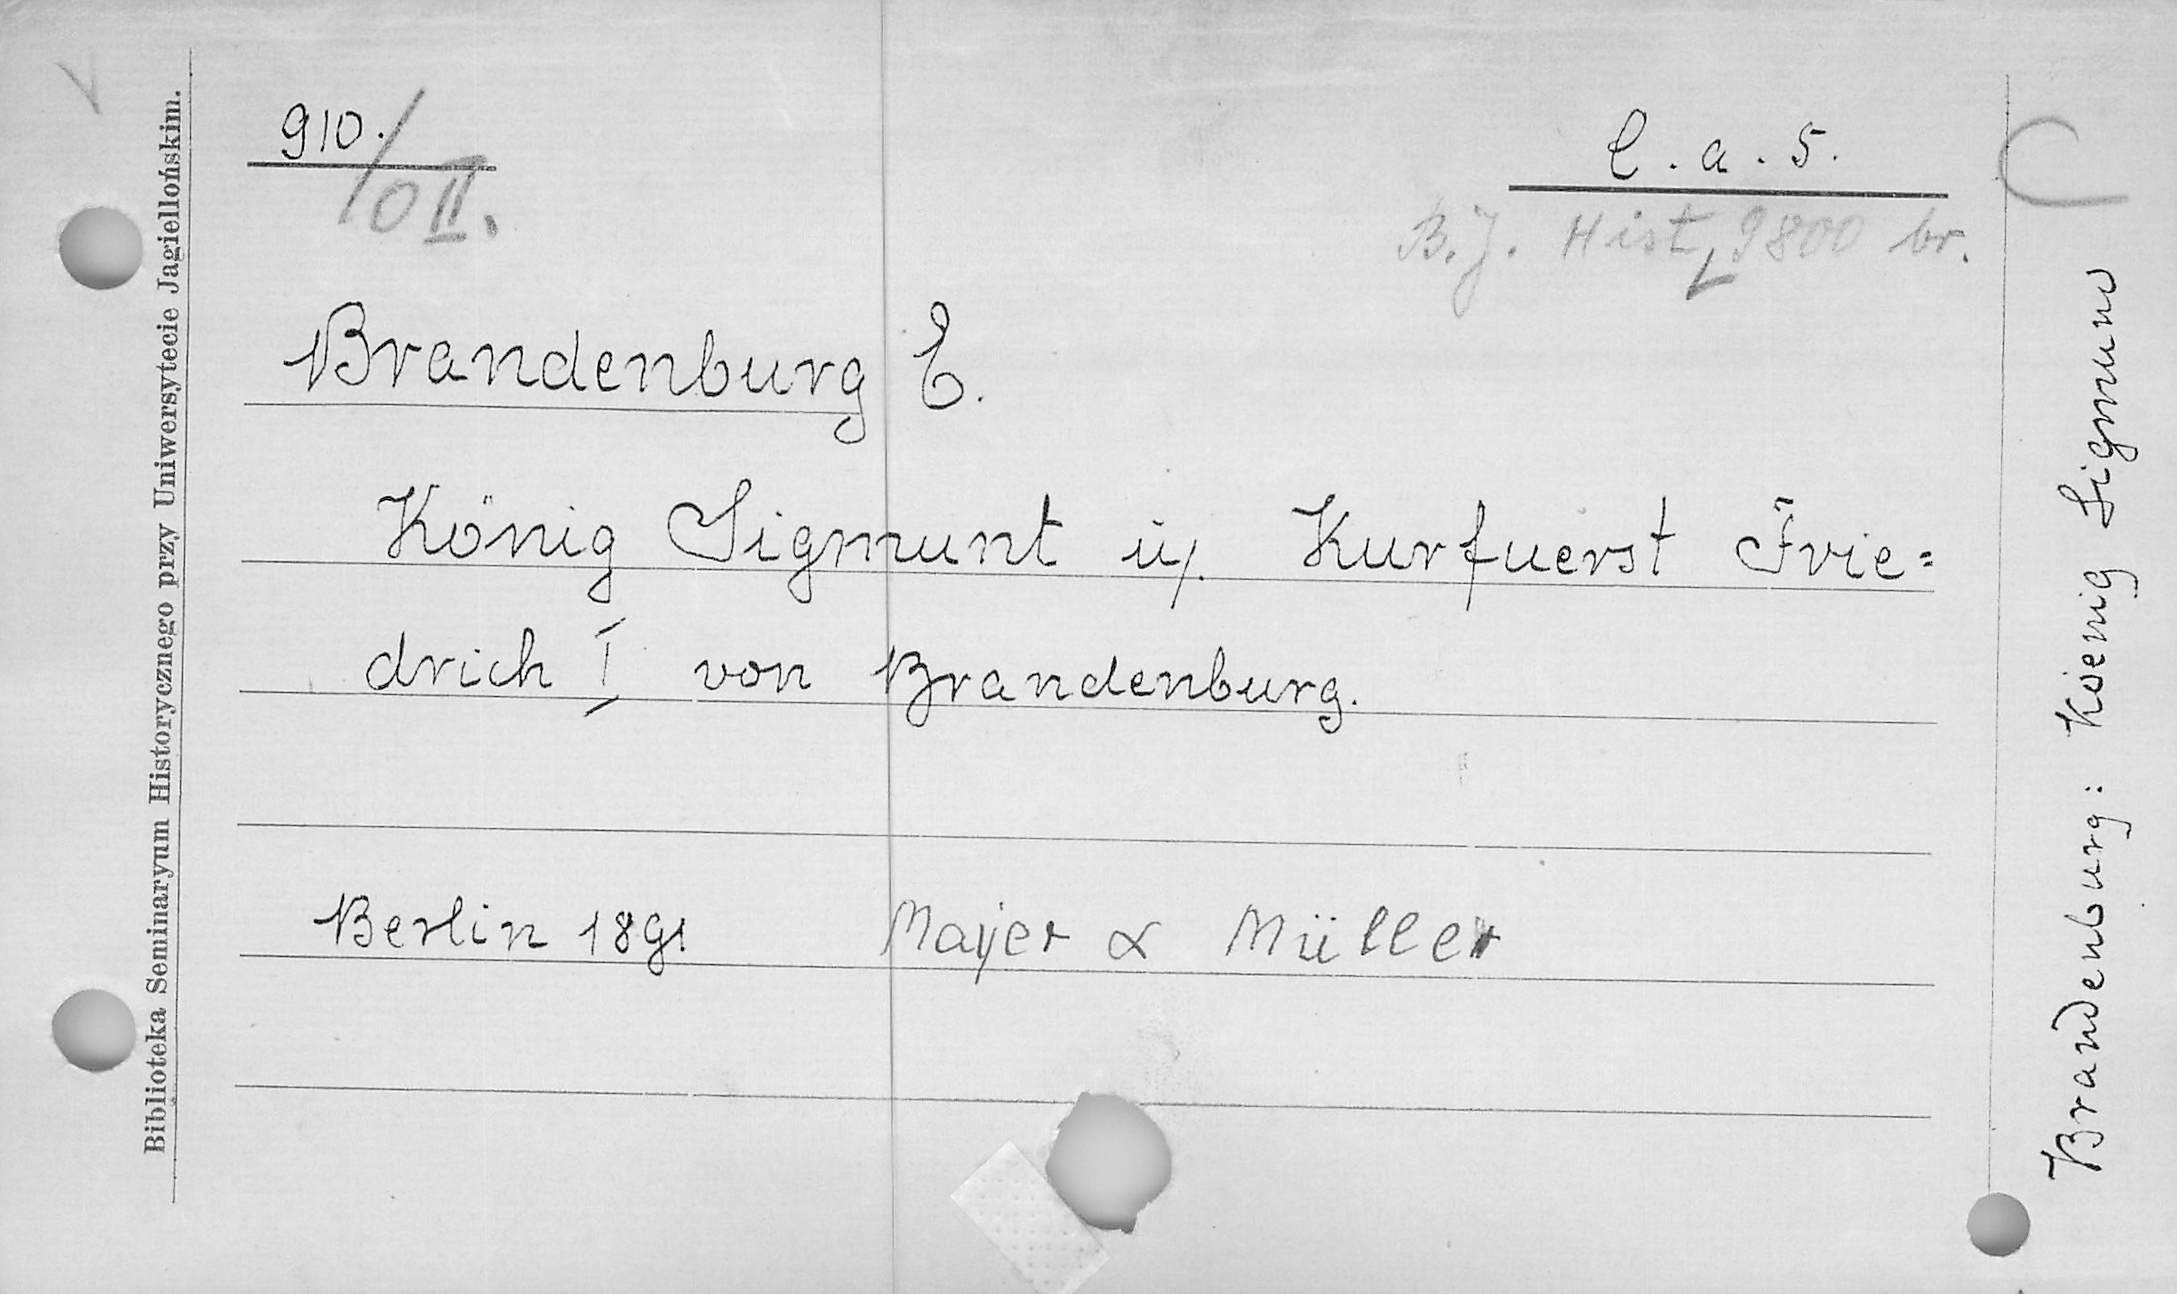 910./O II.
C. a. 5.
B.J. Hist. 9800 br.
Brandenburg E.
König Sigmunt u. Kurfuerst Frie=
drich I von Brandenburg.
Berlin 1891 Mayer & Müller
Biblioteka Seminaryum Historycznego przy Uniwersytecie Jagiellońskim.
Brandenburg: Koenig Sigmund